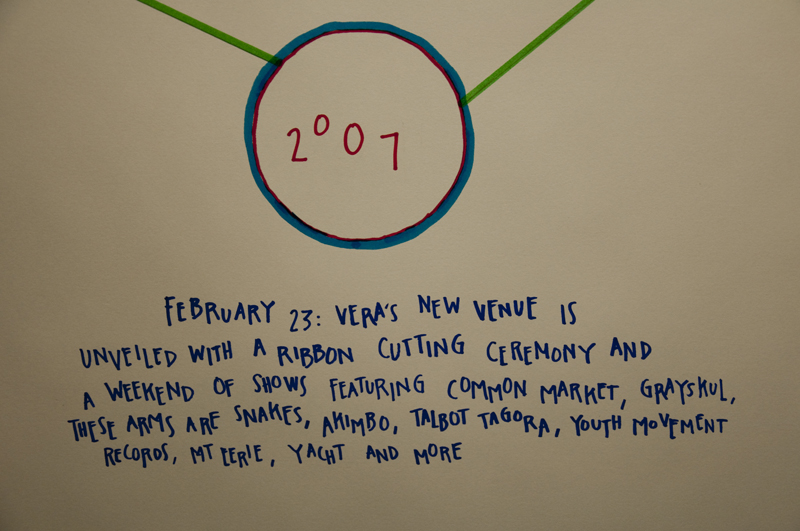 2007
FEBRUARY 23: VERA'S NEW VENUE IS
UNVEILED WITH A RIBBON CUTTING CEREMONY AND
A WEEKEND OF SHOWS FEATURING COMMON MARKET, GRAYSKUL,
THESE ARMS ARE SNAKES, AKIMBO, TALBOT TAGORA, YOUTH MOVEMENT
RECORDS, MT EERIE, YACHT AND MORE